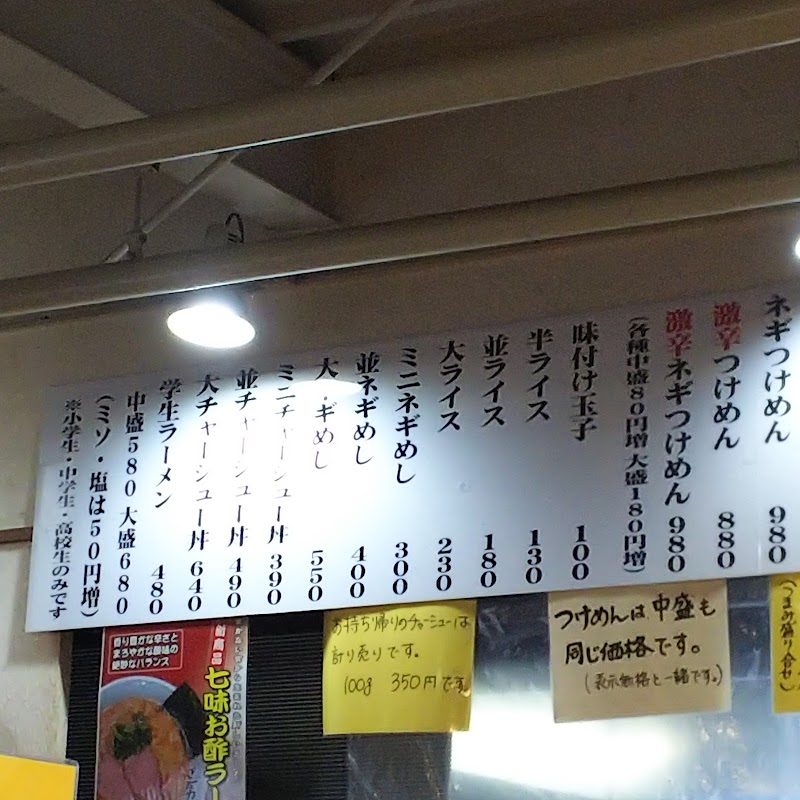 ネギつけめん 980
激辛つけめん 880
激辛ネギつけめん 980
（各種中盛80円増 大盛180円増）
味付け玉子 100
半ライス 130
並ライス 180
大ライス 230
ミニネギめし 300
並ネギめし 400
大 ギめし 550
ミニチャーシュー丼 390
並チャーシュー丼 490
大チャーシュー丼 640
学生ラーメン 480
中盛580 大盛680
（ミソ・塩は50円増）
※小学生・中学生・高校生のみです
（つまみ盛り合せ）
つけめんは中盛も
同じ価格です。
（表示価格と一緒です。）
お持ち帰りのチャーシューは
計り売りです。
100g 350円です
七味お酢ラー
香り豊かな辛さと
まろやかな酸味の
絶妙なバランス